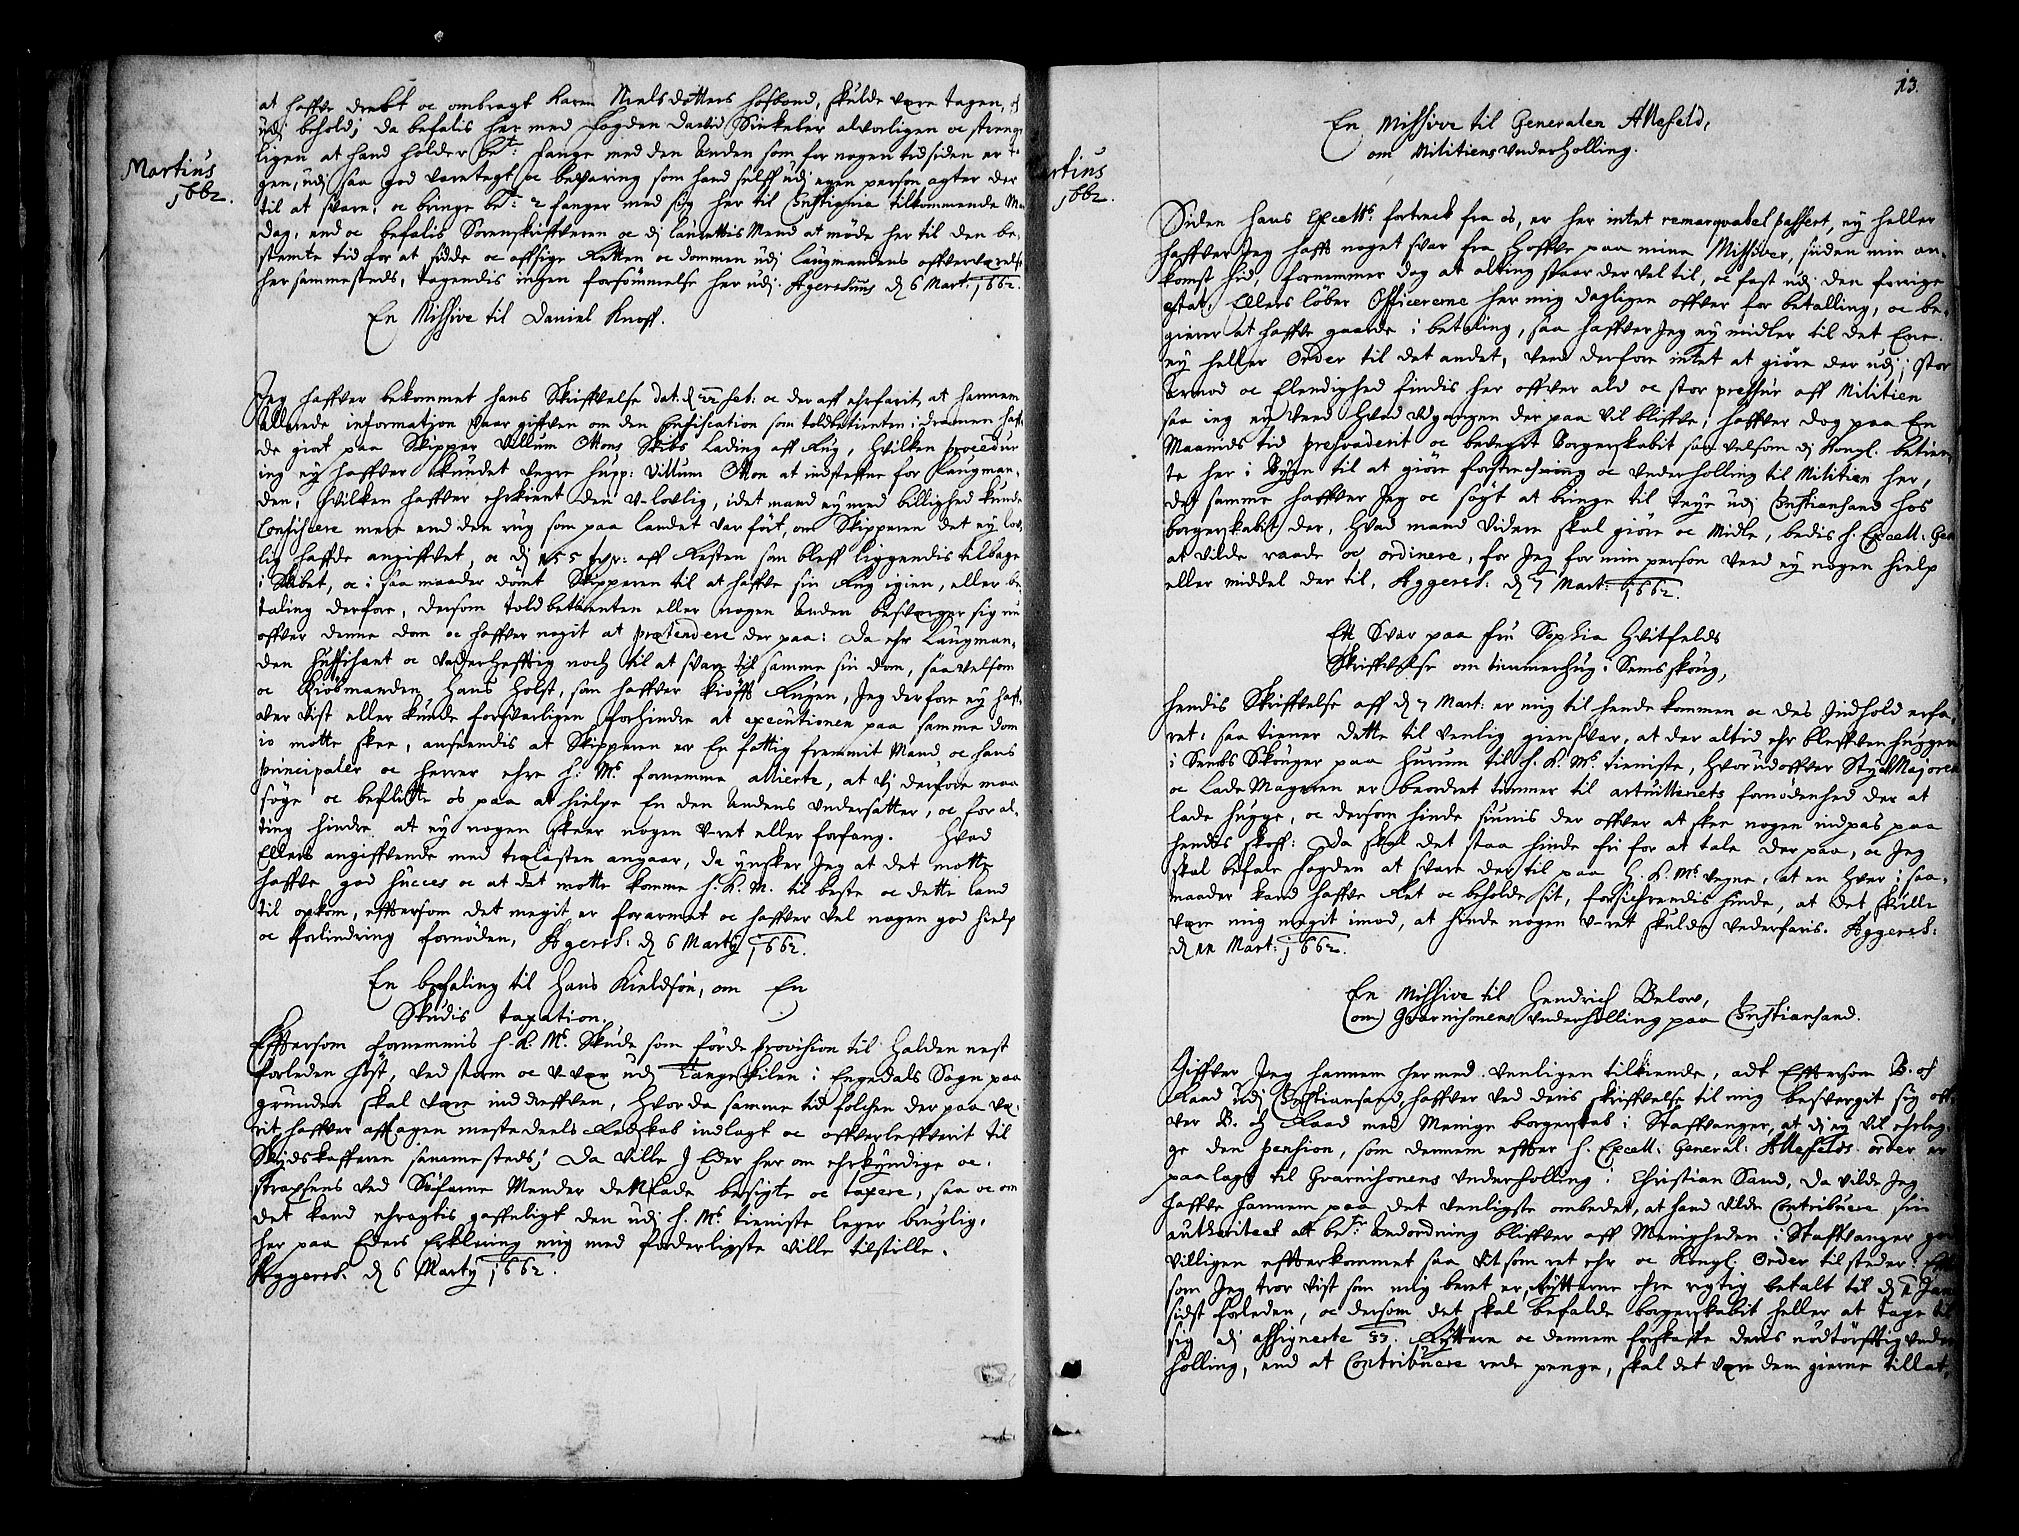 Martius
1662.
at haffve drebt oc ombragt Karen Nielsdotters hosbond, skulde være tagen, oc
udj behold; da befalis her med fogden David Sinkeler alvorligen oc strenge
ligen at hand holder bet: fange med den anden som for nogen tid siden er ta
gen, udj saa god varetegt oc bevaring som hand sielff udj egen person agter der
til at svare, oc bringe bet: 2 fanger med sig her til Christiania tilkommende Man
dag, end oc befalis Sorenskriffveren oc dj Laurettis Mend at møde her til den be,
stemte tid for at sidde oc affsige Retten oc dommen udj Laugmandens offververelse
hersammesteds, tagendis ingen forsømmelse her udj. Agershuus d 6 Mart: 1662.
En Missive til Daniel Knoff.
Jeg haffver bekommet hans Skriffvelse dat: d 22 hei: oc der aff ehrfarit, at hannem
allerede information vaar giffven om den Confiscation som toldbetienten i Drammen haff,
de giort paa Skipper Villum Ottons Skibs Lading aff Rug, hvilken procedur
ieg ey haffver kundet vegre hupp: Villum Otton at indsteffne for Laugman,
den, hvilken haffver ehrkient den u-lovlig, idet mand ey med billighed kunde
Confiscere mere end den rug som paa landet var ført, om Skipperen det ey lov,
lig haffde angiffvet, oc dj 155 tdr: aff Resten som bleff liggendis tilbage
i Skibet, oc i saa maader dømt Skipperen til at haffve sin Rug igien, eller be
taling derfore, dersom toldbetienten eller nogen anden besverger sig nu
offver denne dom oc haffver nogit at prætendere der paa: Da ehr Laugman,
den suffisant oc vederhefftig noch til at svare til samme sin dom, saavelsom
oc Kiøbmanden Hans Holst, som haffver kiøfft Rugen, Jeg derfore ey haff,
ver vist eller kunde forsvarligen forhindre at executionen paa samme dom
io motte skee, anseendis at Skipperen er En fattig fremmit Mand, oc hans
principaler oc herrer ehre h: Ms fornemme allierte, at vj derfore maa
søge oc beflitte os paa at hielpe En den andens undersatter, oc for al,
ting hindre at ey nogen skeer nogen u-ret eller forfang. Hvad
Ellers angiffvende med trælasten angaar, da ynsker Jeg at det motte
haffve god succes oc at det motte komme h. K. M. til beste oc dette land
til opkom, effterson det megit er forarmet oc haffver vel nogen god hielp
oc forlindring fornøden, Agersh: d 6 Martij 1662.
En befaling til Hans Kieldsøn, om En
Skudis taxation.
Effterson fornemmis h. K. Ms. Skude som førde provision til Halden nest
forleden høst, ved storm oc u-vær udj Tangeskilen i Engedals Sogn paa
grunden skal være inddreffven, hvor da samme tid folchen der paa va,
rit, haffver afftagen mestedeels Redskab indlagt oc offverleffverit til
Skydskafferen sammesteds; Da ville I Eder her om ehrkyndige oc
straxsens ved Søfarne Mender dennelade besigte oc taxere, saa oc om
det kand ehragtis gaffneligt den udj h. Ms. tieniste leger bruglig,
her paa Eders Erklering mig med forderligste ville tilstille.
Aggersh: d 6 Martij 1662.
13.
rtius
1662.
En Missive til Generalen Allefeld,
om Militiens underholling.
Siden hans Excells fortreck fra os, er her intet remarqvabel passert, ey heller
haffver Jeg hafft noget svar fra Hoffve paa mine Missiver, siden min an,
komst hid, fornemmer dog at alting staar der vel til, oc fast udj den forrige
estat. Ellers løber Officererne her mig dagligen offver for betalling, oc be,
gierer at haffve gaarde i betaling, saa haffver Jeg ey midler til det Ene
ey heller Order til det andet, veed derfore intet at giøre der udj; stor
Armod oc Elendighed findis her offver ald oc stor pressur aff Militien
saa ieg ey veed hvad udgangen der paa vil bliffve; haffver dog paa En
Maanids tid persvaderit oc beveget Borgerskabit saavelsom dj Kongl. betien,
te her i Byen til at giøre forstrechning oc underholling til Militien her,
det samme haffver Jeg oc søgt at bringe til veye udj Christiansand hos
borgerskabit der, hvad mand videre skal giøre oc Midle, bedis h. Excell: Gen
at vilde raade oc ordinere, for Jeg for min person veed ey nogen hielp
eller middel der til, Aggersh: d 7 Mart: 1662.
Ett Svar paa fru Sophia Hvitfelds
Skriffvelse om timmerhug i Semsskoug,
Hendis Skriffvelse aff d 7 Mart: er mig til hende kommen oc des Indhold erfa,
ret: saa tiener dette til venlig giensvar, at der altid ehr bleffven huggen
i Sembs Skouger paa Hurum til h. K. Ms. tieniste, hvorudoffver StyckMajoren
oc LadeMageren er beordret timmer til artilleriets fornødenhed der at
lade hugge, oc dersom hinde siunis der offver at skee nogen indpas paa
hendes skoff: Da skal det staa hinde fri for at tale der paa, oc Jeg
skal befale fogden at svare der til paa h. K. Ms. vegne, at en hver i saa,
maader kand haffve Ret oc beholde sit, forsichrendis hinde, at det skulle
være mig megit imod, at hinde nogen u-ret skulde vederfaris. Aggersh:
d 11 Mart: 1662.
En Missive til Hendrich Below,
om Gvarnisonens underholling paa Christiansand.
Giffver Jeg hannem her med venligen tilkiende, at Effterson B. oc
Raad udj Christiansand haffver ved deris skriffvelse til mig besverget sig off,
ver B. oc Raad med Menige borgerskab i Staffvanger, at dj ey vil ehrleg,
ge den pension, som dennem effter h. Excell: General: Allefelds order er
paalagt til Gvarnisonens underholling i Christian Sand, Da vilde Jeg
haffve hannem paa det venligste ombedet, at hand vilde Contribuere sin
authoritet at bete: Anordning bliffver aff Menigheden i Staffvanger god
villigen effterkommet saa vit som ret ehr oc Kongl. Order tilsteder.
som Jeg tror vist som mig beret er, rytterne ehre rigtig betalt til d 1 Jan
sidst forleden, oc dersom det skal befalde borgerskabit heller at tage til
sig dj assignerte 33. Ryttere oc dennem forskaffe deris nødtørfftig under
holling, end at Contribuere rede penge, skal det være dem gierne tillat,